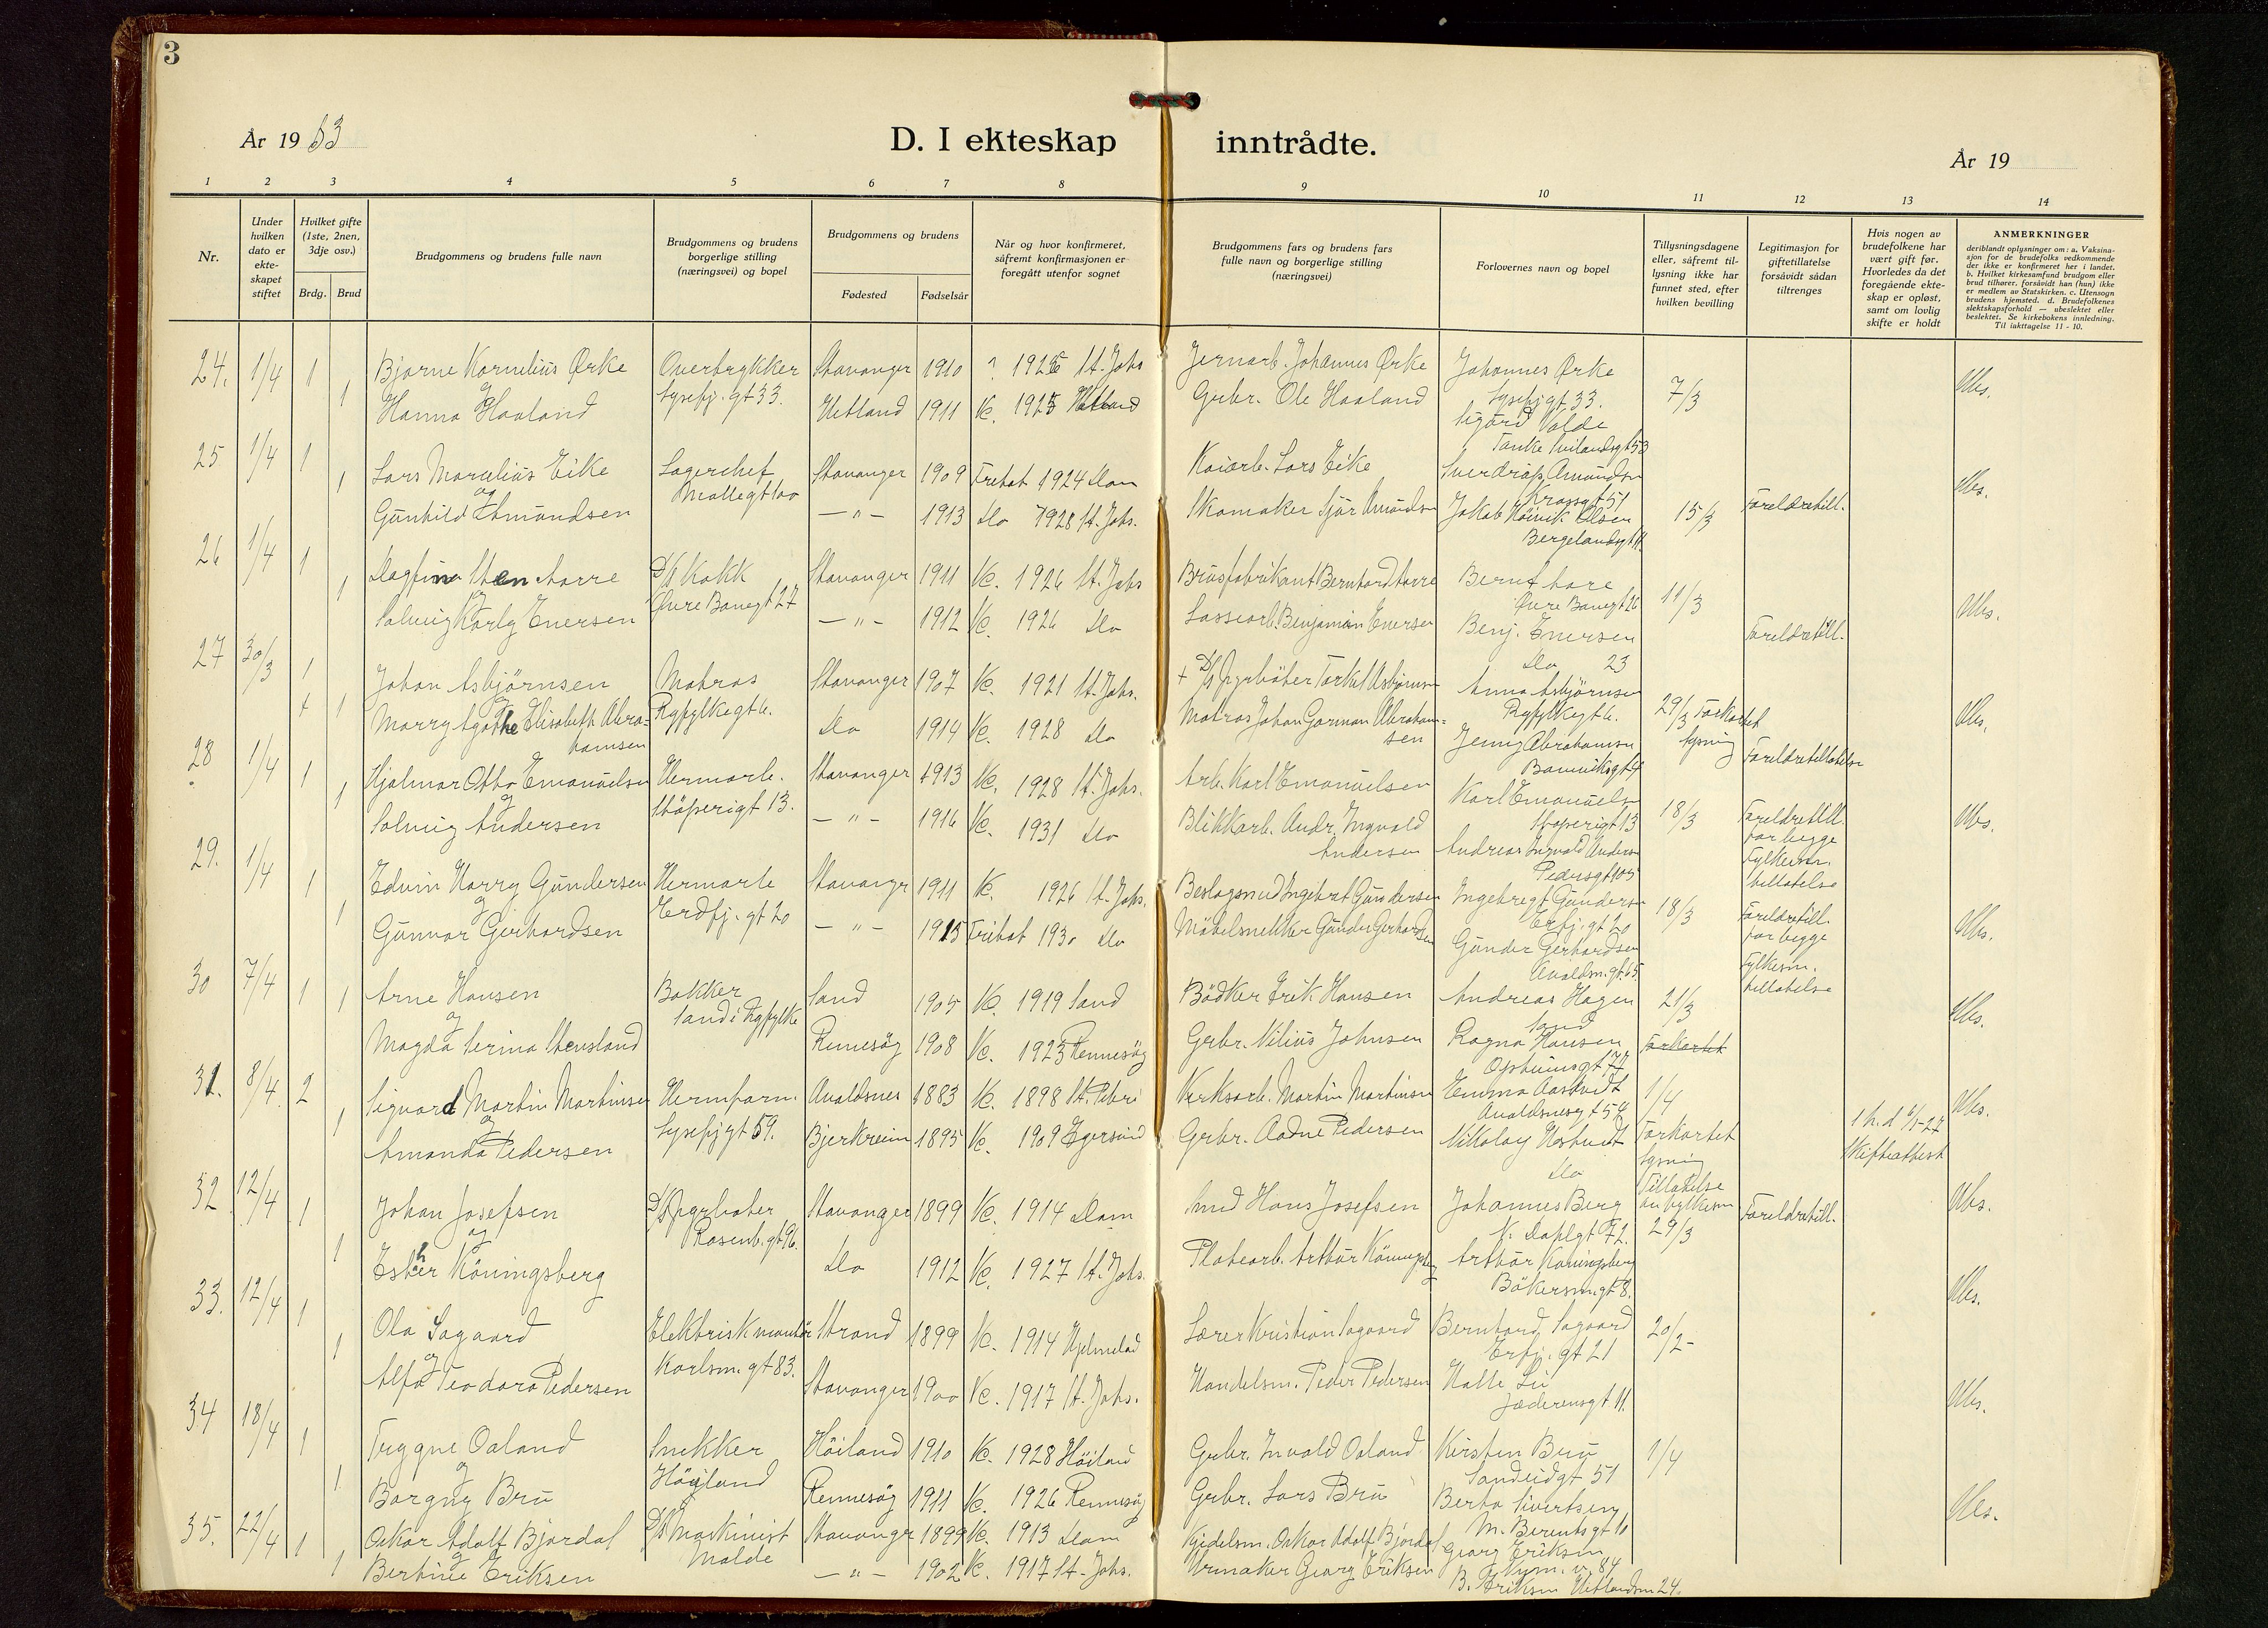 3
År 19 33
D. I ekteskap inntrådte.
År 19
1 2 3 4 5 6 7 8 9 10 11 12 13 14
Nr.
Under hvilken dato er ekteskapet stiftet
Hvilket gifte (1ste, 2nen, 3dje osv.)
Brdg. Brud
Brudgommens og brudens fulle navn
Brudgommens og brudens borgerlige stilling (næringsvei) og bopel
Brudgommens og brudens
Fødested Fødselsår
Når og hvor konfirmeret, såfremt konfirmasjonen er foregått utenfor sognet
Brudgommens fars og brudens fars fulle navn og borgerlige stilling (næringsvei)
Forlovernes navn og bopel
Tillysningsdagene eller, såfremt tillysning ikke har funnet sted, efter hvilken bevilling
Legitimasjon for giftetillatelse forsåvidt sådan tiltrenges
Hvis nogen av brudefolkene har vært gift før. Hvorledes da det foregående ekteskap er opløst, samt om lovlig skifte er holdt
ANMERKNINGER
deriblandt oplysninger om: a. Vaksinasjon for de brudefolks vedkommende der ikke er konfirmeret her i landet. b. Hvilket kirkesamfund brudgom eller brud tilhører, forsåvidt han (hun) ikke er medlem av Statskirken. c. Utensogn brudens hjemsted. d. Brudefolkenes slektskapsforhold — ubeslektet eller beslektet. Se kirkebokens innledning. Til iakttagelse 11 - 10.
24. 1/4 1 Bjarne Kornelius Ørke Overtrykker Stavanger 1910 1925 St. Johs Jernarb. Johannes Ørke Johannes Ørke 7/3 Ubs.
og Lysefj. gt 33. Lysefj gt 33.
1 Hanna Haaland Hetland 1911 K. 1925 Hetland Grbr. Ole Haaland Sigurd Valde
Tanke Svilandsgt 53
25 1/4 1 Lars Marcelius Eike Lagerchef Stavanger 1909 Fritat 1924 Dom Kaiarb. Lars Eike Sverdrup Amundsen Ubs.
og Møllegt 100 Krossgt 51
1 Gunhild Amundsen — " — 1913 Do 1928 St. Johs. Skomaker Sjur Amundsen Jakob Høivik Olsen 15/3 Foreldretill.
Bergelandsgt 11.
26 1/4 1 Dagfinn Sten Aarre D/S Kokk Stavanger 1911 K. 1926 St. Johs Brusfabrikant Bernhard Aarre Bernt Aare 11/3 Ubs.
og Øvre Banegt 27 Øvre Banegt 26
1 Solveig Karly Enersen — " — 1912 K. 1926 Do Losseorb. Benjamin Enersen Benj. Enersen Foreldretill.
Do 23
27 30/3 1 Johan Asbjørnsen Matros Stavanger 1907 K. 1921 St. Johs. + D/S fyrbøter Torkel Asbjørnsen Anna Asbjørnsen 29/3 Forkortet Ubs.
og Ryfylkegt 6. Ryfylkegt 6. lysning
+ 1 Marry Agathe Elisabeth Abra- Do 1914 K. 1928 Do Matros Johan Gorman Abraham- Jenny Abrahamsen Foreldretillatelse
hamsen sen
28 1/4 1 Hjalmar Otto Emanuelsen Hermarb. Stavanger 1913 K. 1928 St. Johs. Arb. Karl Emanuelsen Karl Emanuelsen 18/3 Foreldretill. Ubs.
og Støperigt 13. Støperigt 13 for begge
1 Solveig Andersen — " — 1916 K. 1931 Do Blikkarb. Andr. Ingvald Andreas Ingvald Andersen Fylkesm.
Andersen Pedersgt 105 tillatelse
29. 1/4 1 Edvin Harry Gundersen Hermarb Stavanger 1911 K. 1926 St. Johs. Beslagsmed Ingebret Gundersen Ingebregt Gundersen 18/3 Foreldretill. Ubs.
og Erdfj. gt 20 Erfj. gt 20 for begge
1 Gunvor Gerhardsen — " — 1915 Fritat 1930 Do Møbelsnekker Gunder Gerhardsen Gunder Gerhardsen Fylkesm.
Avaldsn. gt. 65 tillatelse
30 7/4 1 1 Arne Hansen Bakker Sand 1905 K. 1919 Sand Bødker Erik Hansen Andreas Hagen 21/3 Ubs.
og Sand i Ryfylke Sand
Magda Serina Stensland Rennesøy 1908 K. 1923 Rennesøy Grbr. Nilius Johnsen Ragna Hansen Forkortet
Opheimsgt 77
31. 8/4 2 Sigvard Martin Martinsen Hermform. Avaldsnes 1883 K. 1898 St. Petri Verksarb. Martin Martinsen Emma Aastvedt 1/4 1 h. d 6/1-27 Ubs.
og Lysefjgt 59. Avaldsnesgt 54
1 Amanda Pedersen Bjerkreim 1895 K. 1909 Egersund Grbr. Aadne Pedersen Nikolay Hostvedt Forkortet Skifteattest
Do lysning
32 12/4 1 Johan Josefsen D/S fyrbøter Stavanger 1899 K. 1914 Dom Smed Hans Josefsen Johannes Berg Tillatelse av fylkesm Foreldretill. Ubs.
og Rosenb. gt 96. 72. 29/3
1 Esther Köningsberg Do 1912 K. 1927 St. Johs. Platearb. Arthur Köningsberg Arthur Köningsberg
Bökersm. gt 8.
33. 12/4 1 Ola Sagaard Elektriskmontör Strand 1899 K. 1914 Hjelmeland Lærer Kristian Sagaard Bernhard Sagaard 20/2- Ubs.
og Karlsm. gt 83. Erfj. gt 21
1 Alfa Teodora Pedersen Stavanger 1900 K. 1917 St. Johs. Handelsm. Peder Pedersen Halle Lü
Jæderensgt 11.
34 18/4 1 Tryggve Oaland Snekker Höiland 1910 K. 1928 Höiland Grbr. Invald Oaland Kirsten Bru 1/4 Ubs.
og Höyland Sandeidgt 51
1 Borgny Bru Rennesøy 1911 K. 1926 Rennesøy Grbr. Lars Bru Berta Sivertsen
M. Berentsgt 10
35. 22/4 1 Oskar Adolf Bjordal D/S Maskinist Stavanger 1899 K. 1913 Dom Oskar Adolf Bjordal Georg Eriksen Ubs.
og Molde Nym. v. 84
1 Bertine Eriksen — " — 1902 K. 1917 St. Johs. Urmaker Georg Eriksen B. Eriksen Hetlandsm 24.